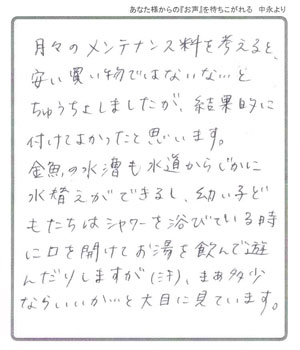 あなた様からの『お声』を待ちこがれる 中永より
月々のメンテナンス料を考えると、
安い買い物ではないな…と
ちゅうちょしましたが、結果的に
付けてよかったと思います。
金魚の水漕も水道からじかに
水替えができるし、幼い子ど
もたちはシャワーを浴びている時
に口を開けてお湯を飲んで遊
んだりしますが(汗)、まぁ多少
ならいいか…と大目に見ています。